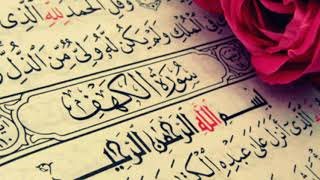 وَقُلِ الْحَمْدُ لِلَّهِ الَّذِي
الْمُلْكِ وَلَمْ يَكُن لَّهُ وَلِيٌّ مِّنَ الذُّلِّ
سُورَةُ الْكَهْفِ
بِسْمِ اللَّهِ الرَّحْمَٰنِ الرَّحِيمِ
الَّذِي أَنزَلَ عَلَىٰ عَبْدِهِ الْكِتَابَ